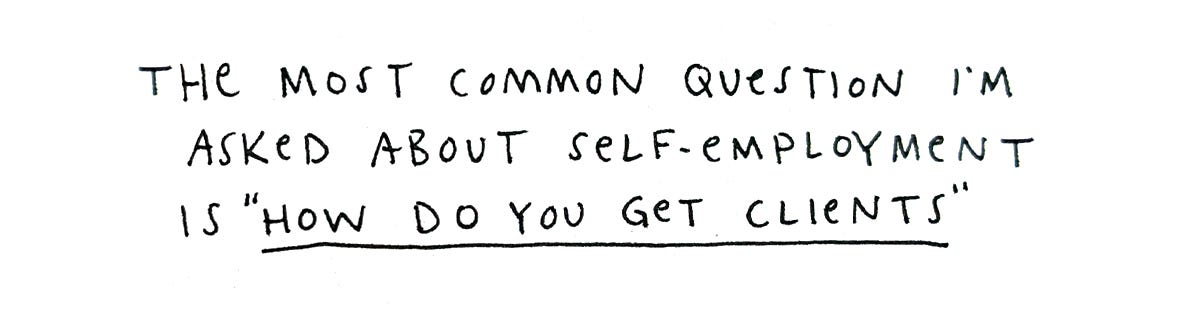 THe MOST COMMON QUeSTION I'M
ASKeD ABOUT SeLF-eMPLOYMeNT
IS "HOW DO YOU GeT CLIeNTS"